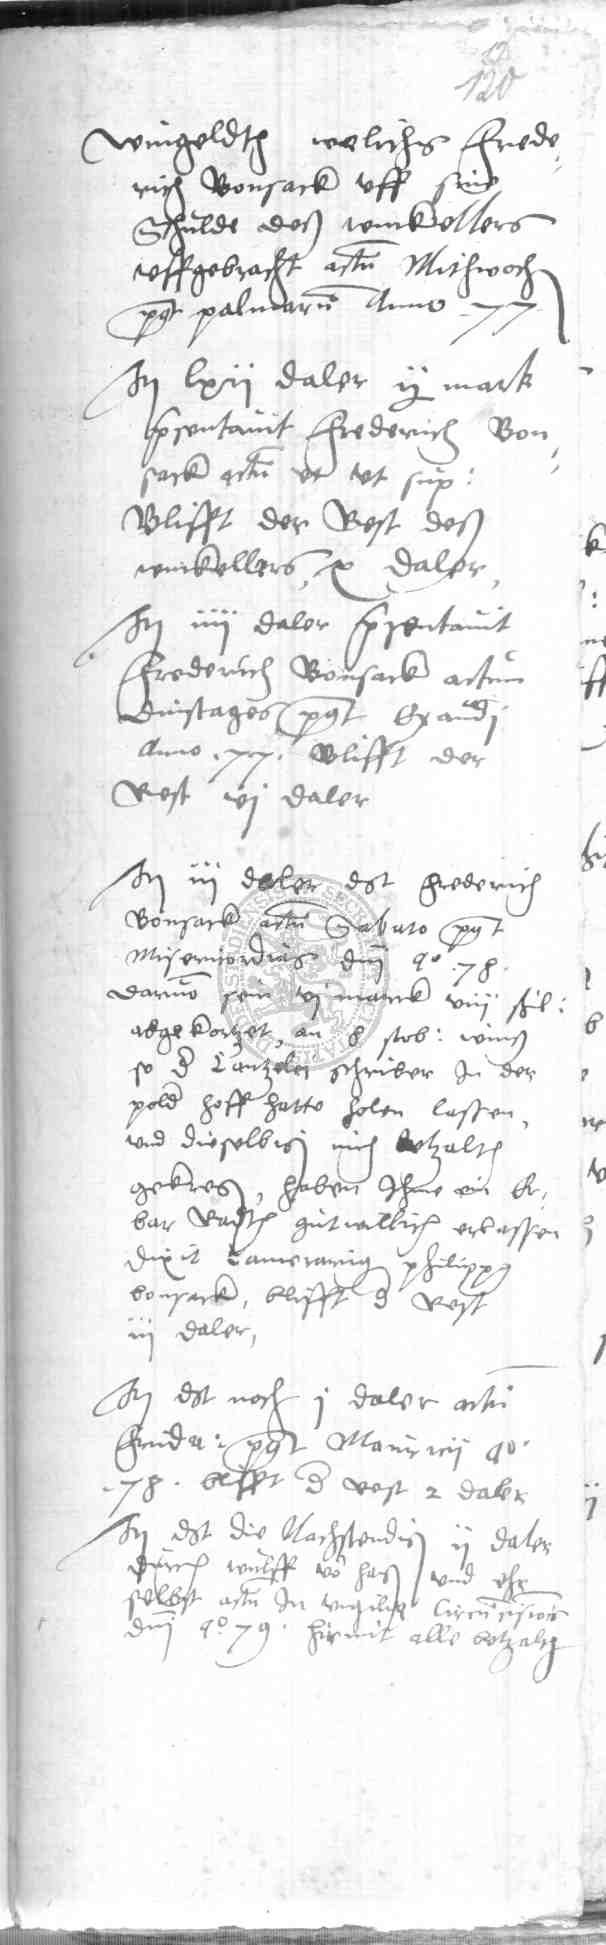 120
Wingeldth welichs Frede,
rich Bonsack uff sine
Schulde deß winkellers
uffgebracht actu Mithwoch
post palmaru Anno 77
It lxij daler ij mark
presentavit Frederich Bon,
sack actu ut sup:
Blifft der Rest deß
winkellers x daler,
It iiij daler presentavit
Frederich Bonsack actum
Dinstages post Exaudi
Anno .77. Blifft der
Rest vj daler
It iij daler dst Frederich
Bonsack actu Sabato post
Misericordias dni ao .78.
darvo sein vj marck viij schil:
abgekortzet, an 8 stob: wins
so d Cantzelei schriber In der
hoff hatte holen lassen,
und dieselbig nich betzalth
, haben Ihme ein Er,
bar Radth gutwillich erlassen
dixit Camerarius philippus
bonsack, blifft d Rest
iij daler,
It dst noch j daler actu
Frida: post Mauricij ao.
.78. blifft d rest 2 daler
It dst die Nachstendig ij daler
durch wulff vo haß und ehr
selbst actu In vigilia Circucisionis
dni ao 79. hirmit alle betzalth